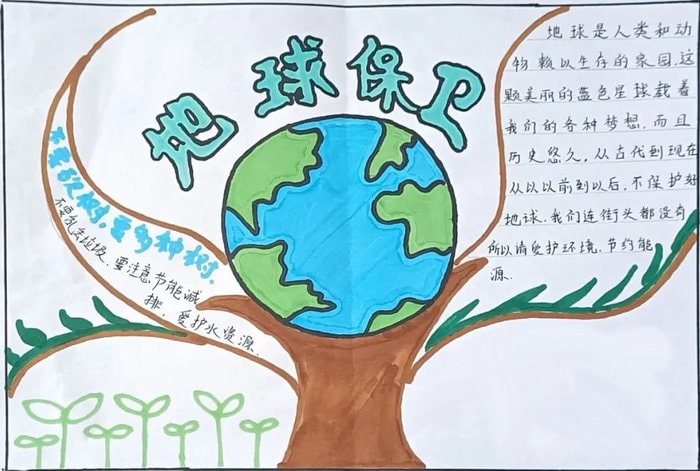 地球保卫
不要砍树,要多种树.
不要乱丢垃圾、要注意节能减
排、爱护水资源.
地球是人类和动
物赖以生存的家园.这
颗美丽的蓝色星球载着
我们的各种梦想.而且
历史悠久,从古代到现在
从以以前到以后,不保护好
地球,我们连街头都没有
所以请爱护环境,节约能
源.